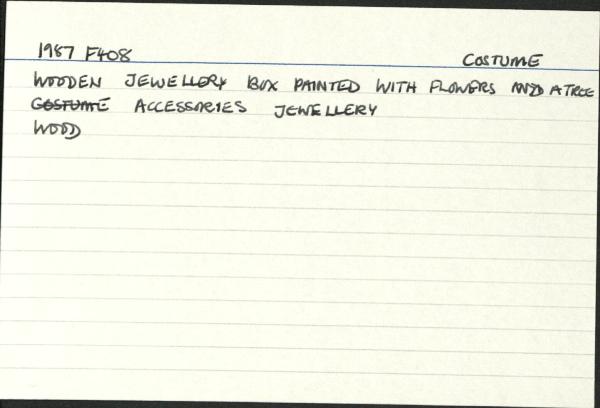 1987 F408 COSTUME
WOODEN JEWELLERY BOX PAINTED WITH FLOWERS AND A TREE
COSTUME ACCESSORIES JEWELLERY
WOOD